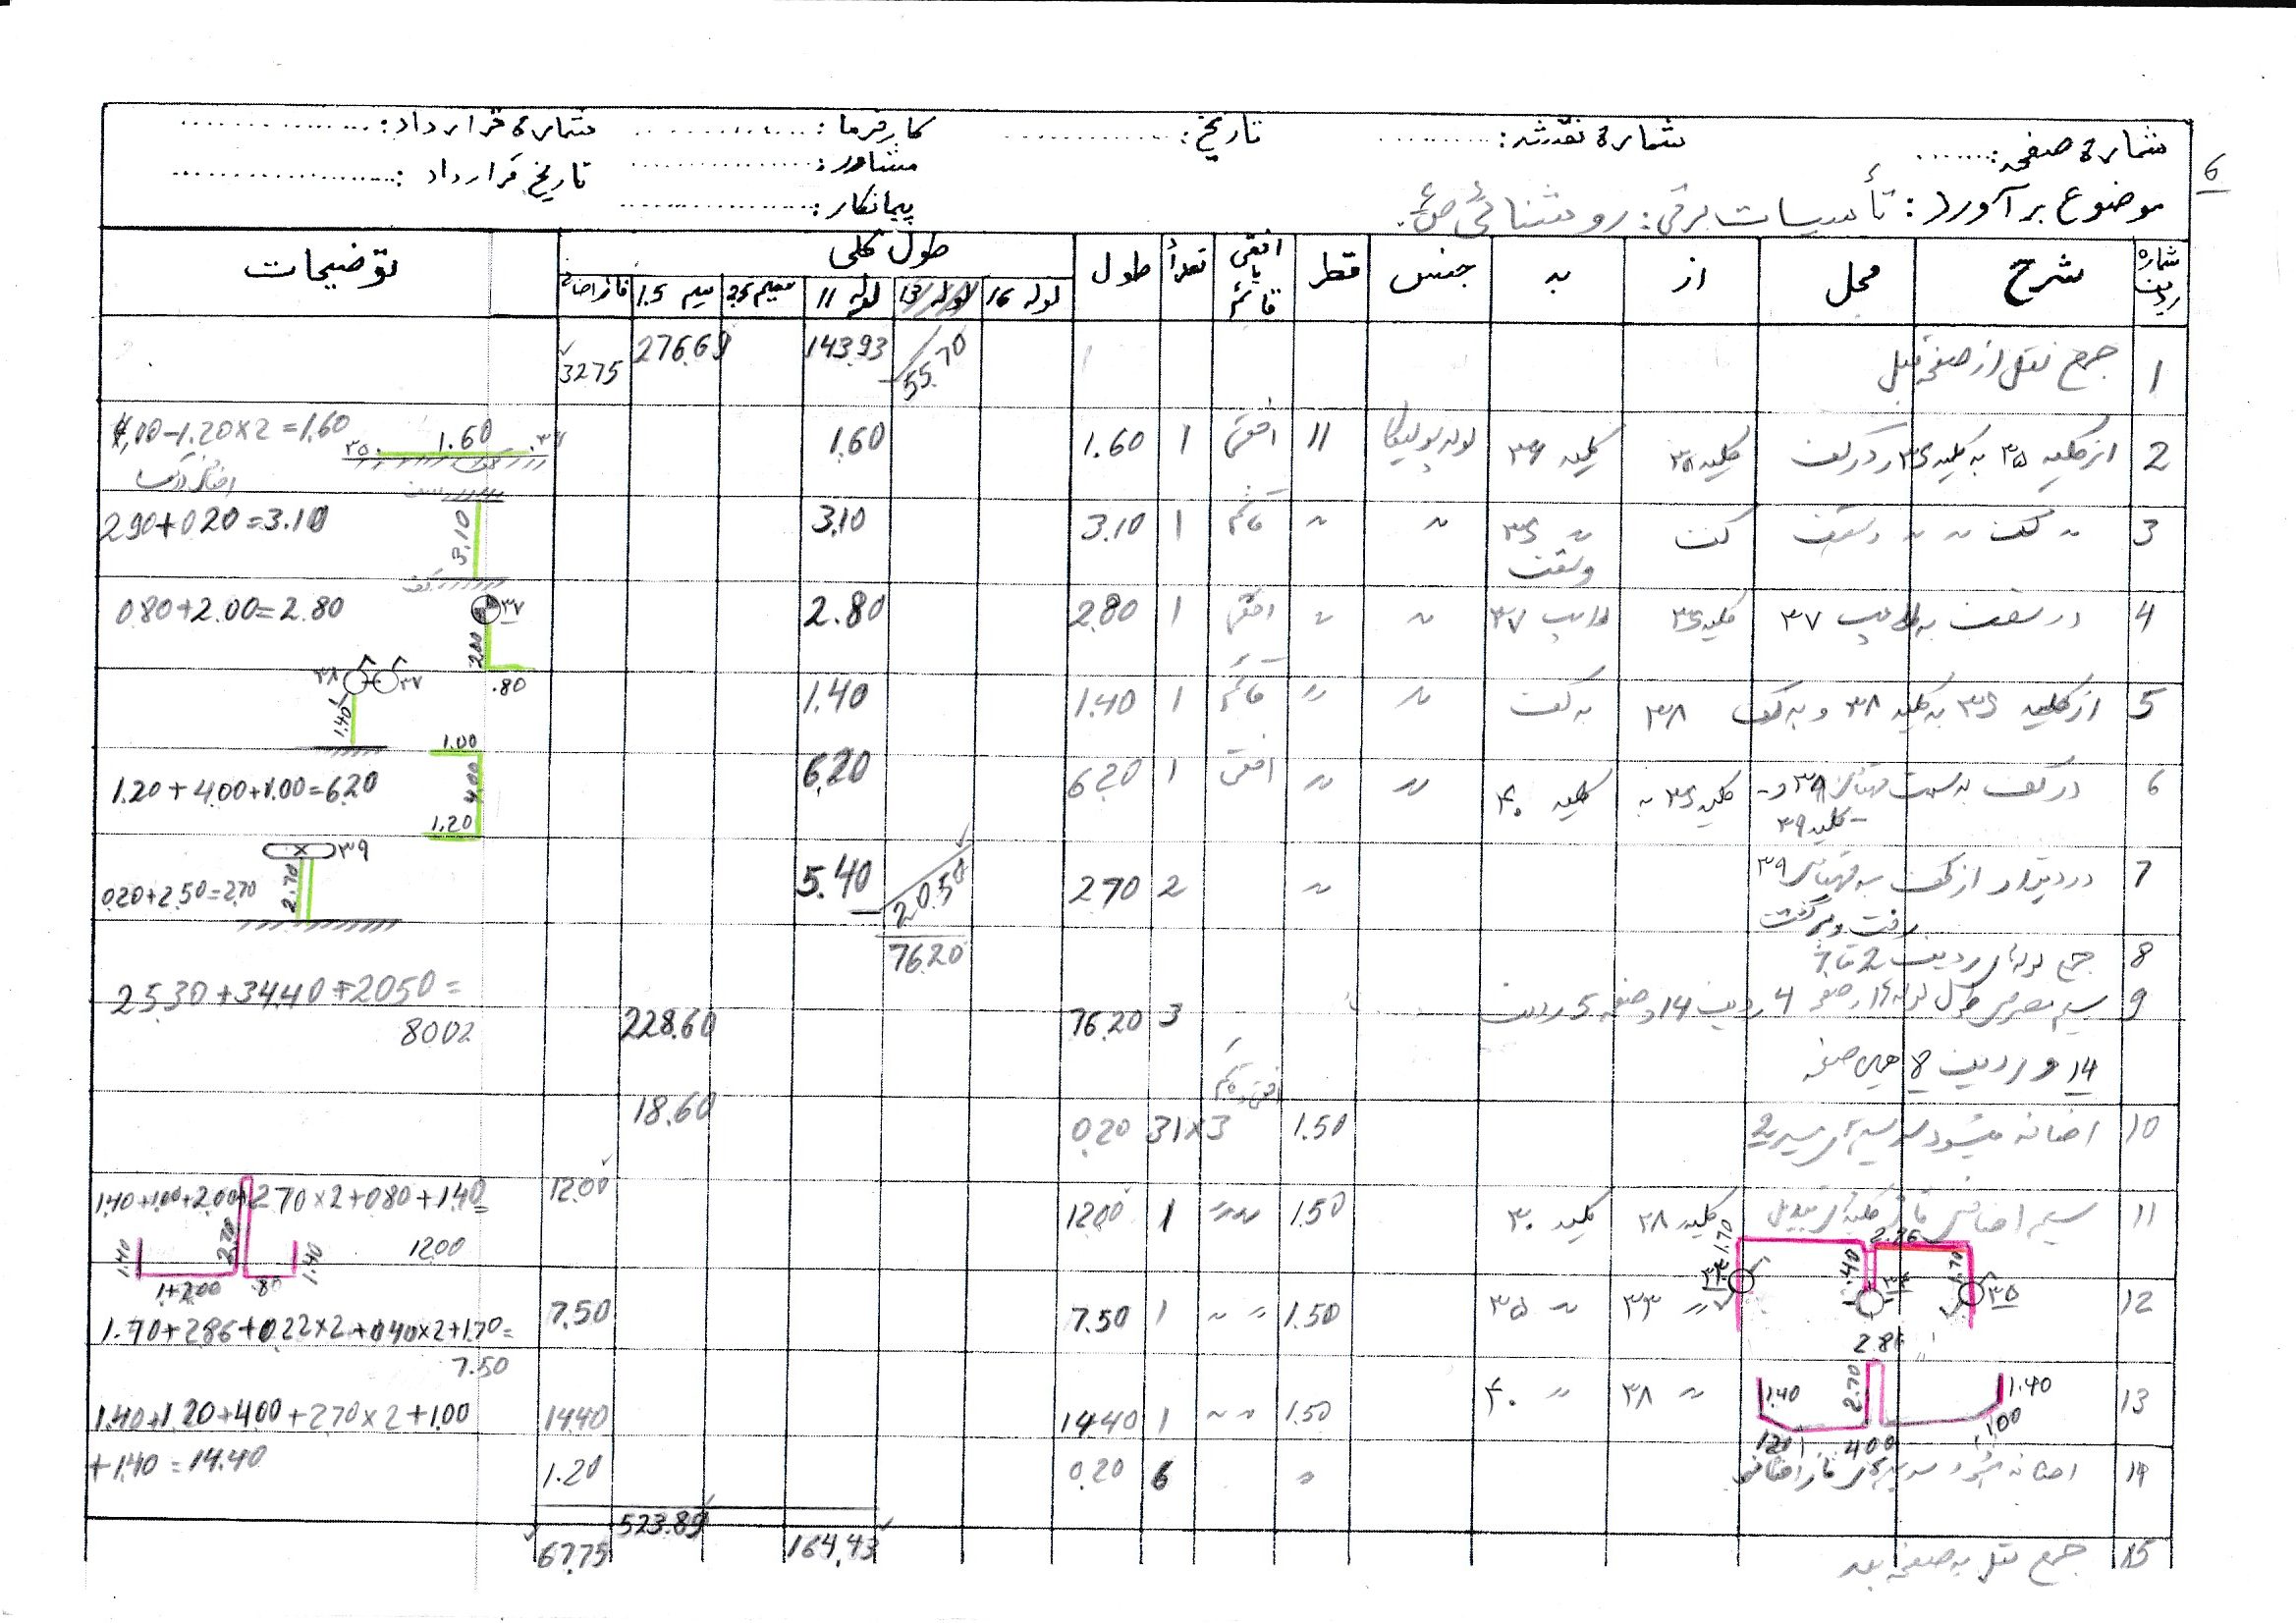 شماره صفحه: ....... شماره نقشه: ......... تاریخ: ............ کارفرما: ............ شماره قرارداد: ............
مشاور: ............ تاریخ قرارداد: ............
6
موضوع برآورد: تأسیسات برقی: روشنائی
پیمانکار: ............
شماره ردیف شرح محل از به جنس قطر افقی یا قائم تعداد طول طول کلی توضیحات
لوله 16 لوله 13 لوله 11 سیم 2.5 سیم 1.5 فاز اضافی
1 جمع نقل از صفحه قبل 55.70 143.93 276.69 3275
2 از کلید ۳۵ به کلید ۳۶ در کف کلید ۳۵ کلید ۳۶ لوله پولیکا 11 افقی 1 1.60 1.60
4.00-1.20×2=1.60 ۳۵ 1.60 ۳۶ کف
3 〃 کف 〃 〃 و سقف کف 〃 ۳۶ و سقف 〃 〃 قائم 1 3.10 3.10
2.90+0.20=3.10 سقف 3.10 کف
4 در سقف به لامپ ۳۷ کلید ۳۶ لامپ ۳۷ 〃 〃 افقی 1 2.80 2.80
0.80+2.00=2.80 ۳۷ 2.00 .80
5 از کلید ۳۶ به کلید ۳۸ و به کف ۳۸ به کف 〃 〃 قائم 1 1.40 1.40
۳۸ ۳۷ 1.40
6 در کف به سمت مهتابی ۳۹ و - کلید ۳۶ به کلید ۴۰ 〃 〃 افقی 1 6.20 6.20
- کلید ۳۹
1.20+4.00+1.00=6.20 1.00 4.00 1.20
7 در دیوار از کف به مهتابی ۳۹ 〃 2 2.70 20.50 5.40
رفت و برگشت
0.20+2.50=2.70 ۳۹ 2.70
8 جمع لوله ردیف 2 تا 7 76.20
9 سیم مصرفی طول لوله 11 صفحه 4 ردیف 14 و صفحه 5 ردیف 3 76.20 228.60
14 و ردیف 8 همین صفحه
25.30+34.40+20.50=
8002
10 اضافه میشود سر سیم 1.50 افقی و قائم 31×3 0.20 18.60
11 سیم اضافی فاز کلید تبدیل کلید ۳۸ کلید ۴۰ 1.50 〃〃 1 12.00 12.00
1.40+1.00+2.00+2.70×2+0.80+1.40=
12.00
1.40 1+2.00 2.70 .80 1.40
12 〃 ۳۳ 〃 ۳۵ 1.50 〃 〃 1 7.50 7.50
1.70 2.26 .40 1.70 ۳۵
1.70+2.86+0.22×2+0.40×2+1.70=
7.50
2.86
13 〃 ۳۸ 〃 ۴۰ 1.50 〃 〃 1 14.40 14.40
1.40 2.70 1.40 1.20 4.00 1.00
1.40+1.20+4.00+2.70×2+1.00
+1.40=14.40
14 اضافه میشود سر سیم فاز اضافی 〃 6 0.20 1.20
15 جمع نقل به صفحه بعد 164.43 523.89 67.75